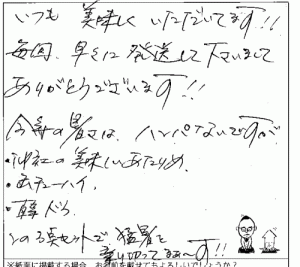 いつも 美味しく いただいてます!!
毎回、早々に 発送して下さいまして
ありがとうございます!!
今年の暑さは、ハンパないですが
・御社の美味しいあたりめ
・缶チューハイ
・韓ドラ
この3点セットで 猛暑を
乗り切ってまぁ〜す!!
※紙面に掲載する場合、お名前を載せてもよろしいでしょうか?